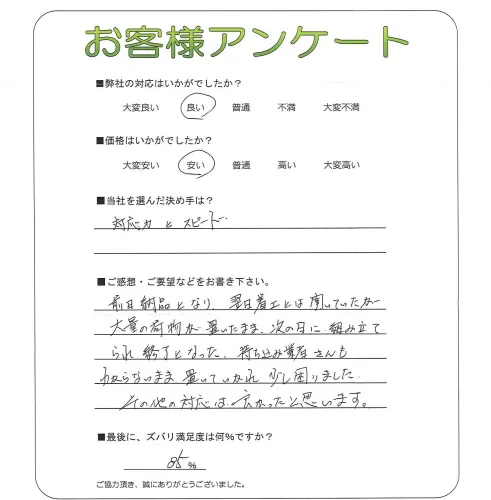 お客様アンケート
■弊社の対応はいかがでしたか？
大変良い 良い 普通 不満 大変不満
■価格はいかがでしたか？
大変安い 安い 普通 高い 大変高い
■当社を選んだ決め手は？
対応力とスピード
■ご感想・ご要望などをお書き下さい。
前日納品となり、翌日着工とは聞いていたが
大量の荷物が置いたまま、次の日に組み立て
られ終了となった。持ち込み業者さんも
わからないまま置いていかれ少し困りました
その他の対応は良かったと思います。
■最後に、ズバリ満足度は何％ですか？
85％
ご協力頂き、誠にありがとうございました。